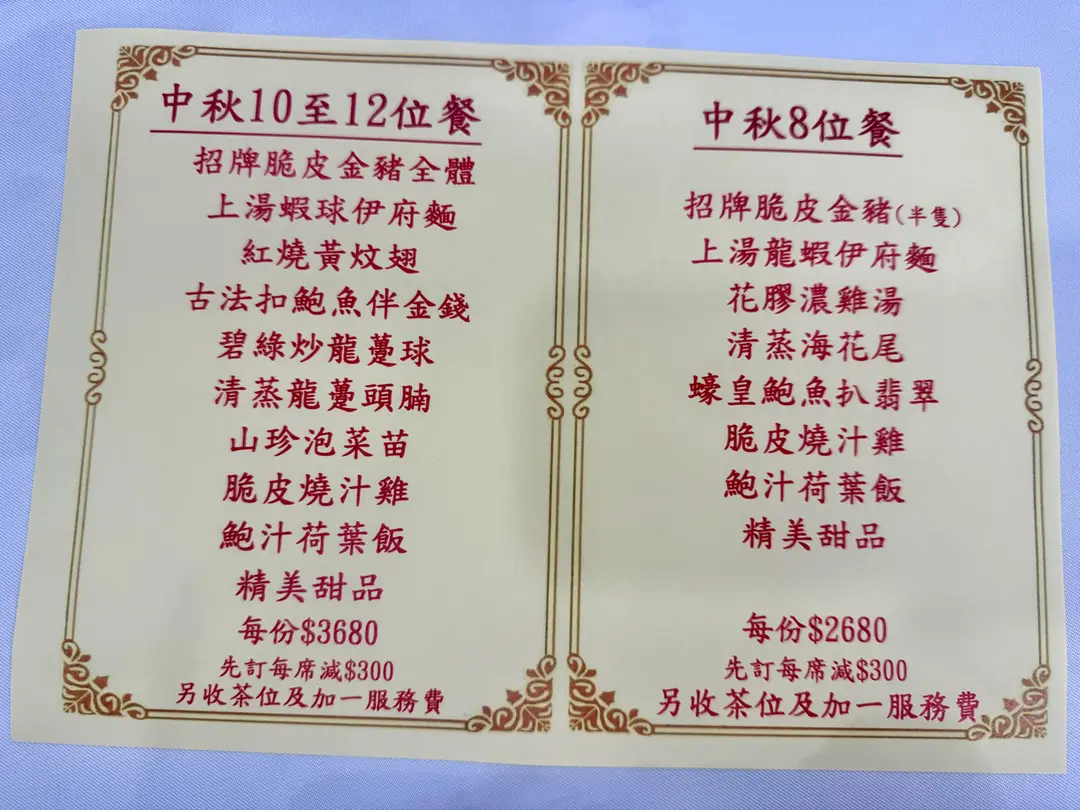 中秋10至12位餐
招牌脆皮金豬全體
上湯蝦球伊府麵
紅燒黃炆翅
古法扣鮑魚伴金錢
碧綠炒龍躉球
清蒸龍躉頭腩
山珍泡菜苗
脆皮燒汁雞
鮑汁荷葉飯
精美甜品
每份$3680
先訂每席減$300
另收茶位及加一服務費
中秋8位餐
招牌脆皮金豬(半隻)
上湯龍蝦伊府麵
花膠濃雞湯
清蒸海花尾
蠔皇鮑魚扒翡翠
脆皮燒汁雞
鮑汁荷葉飯
精美甜品
每份$2680
先訂每席減$300
另收茶位及加一服務費